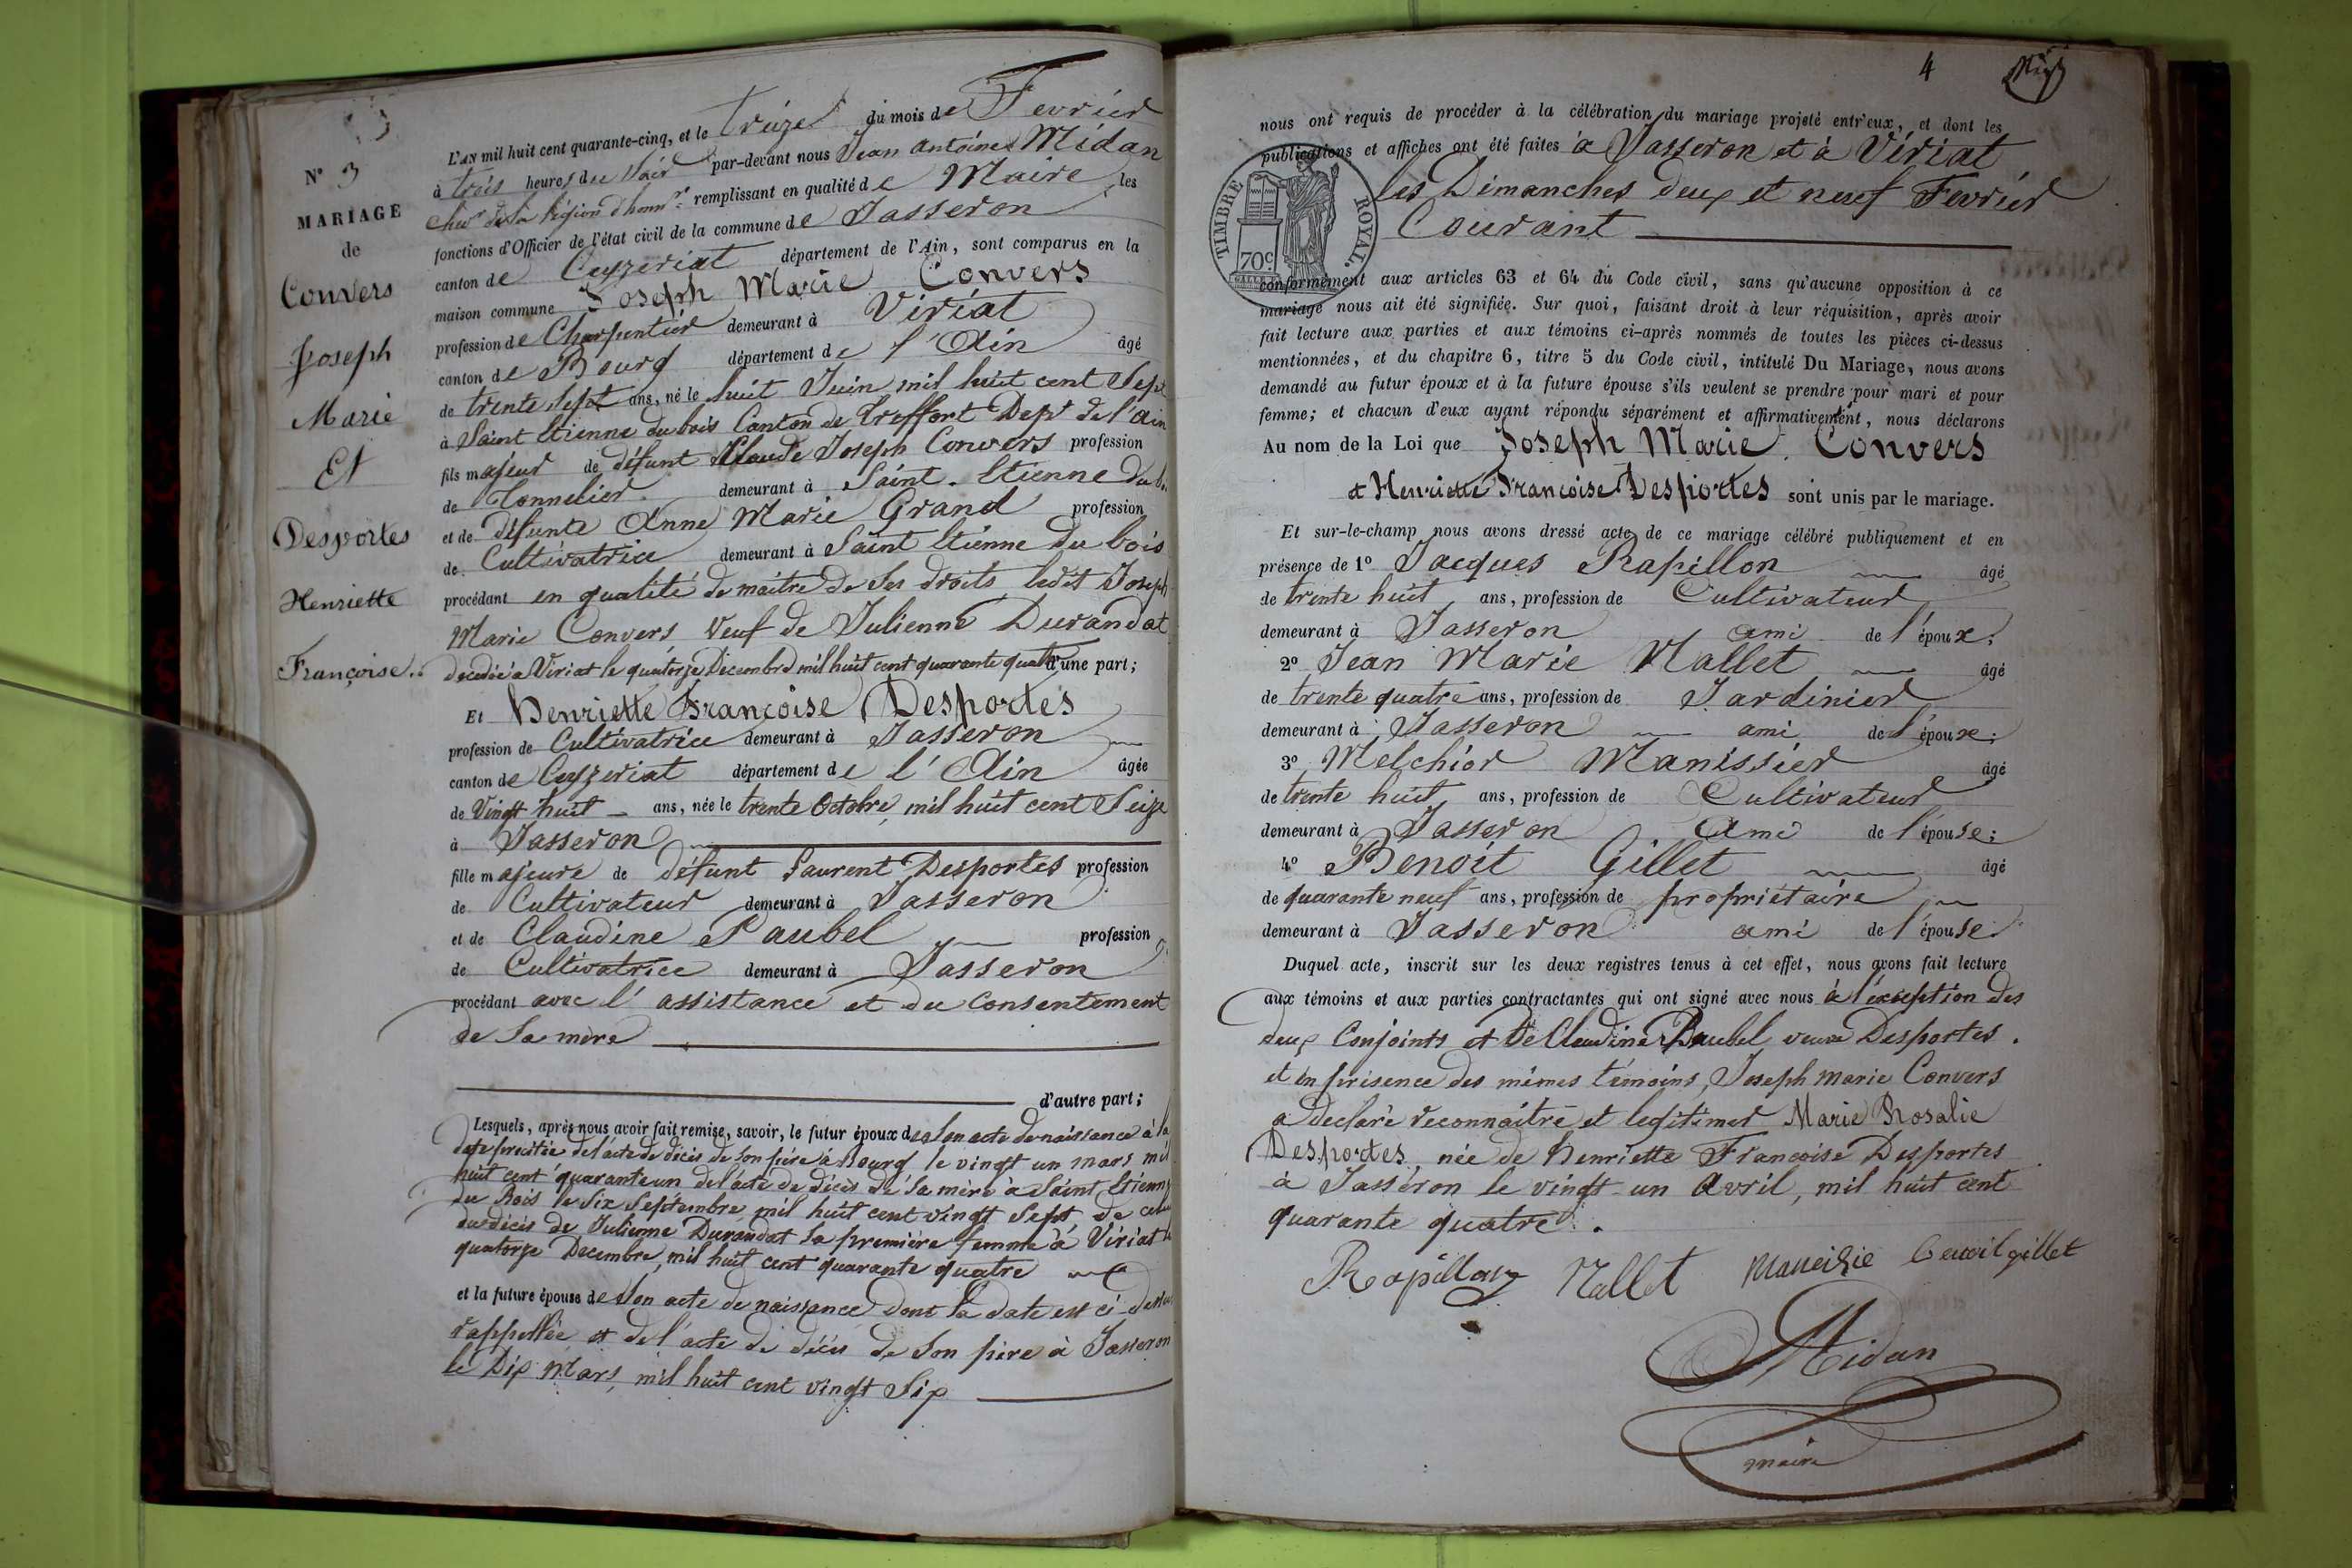 N° 3
MARIAGE
de
Convers
Joseph
Marie
Et
Desportes
Henriette
Françoise.
L'AN mil huit cent quarante-cinq, et le treize du mois de Fevrier
à trois heures du Soir par-devant nous Jean Antoine Midan
Chev.r de la Légion d'honn.r remplissant en qualité de Maire les
fonctions d'Officier de l'état civil de la commune de Jasseron
canton de Ceyzeriat département de l'Ain, sont comparus en la
maison commune Joseph Marie Convers
profession de Charpentier demeurant à Viriat
canton de Bourg département de l'Ain âgé
de trente sept ans, né le huit Juin mil huit cent Sept
à Saint Etienne du bois Canton de Treffort Dep.t de l'ain
fils majeur de défunt Claude Joseph Convers profession
de Tonnelier demeurant à Saint Etienne du b.
et de défunte Anne Marie Grand profession
de Cultivatrice demeurant à Saint Etienne du bois
procédant en qualité de maître de Ses droits ledit Joseph
Marie Convers Veuf de Julienne Durandat
decedée à Viriat le quatorze Decembre mil huit cent quarante quatre d'une part;
Et Henriette Françoise Desportes
profession de Cultivatrice demeurant à Jasseron
canton de Ceyzeriat département de l'Ain âgée
de Vingt huit ans, née le trente Octobre, mil huit cent Seize
à Jasseron
fille majeure de défunt Laurent Desportes profession
de Cultivateur demeurant à Jasseron
et de Claudine Paubel profession
de Cultivatrice demeurant à Jasseron
procédant avec l'assistance et du Consentement
de Sa mère
d'autre part;
Lesquels, après nous avoir fait remise, savoir, le futur époux de Son acte de naissance à la
date précitée de l'acte de décès de Son père à Bourg le vingt un mars mil
huit cent quarante un de l'acte de décès de Sa mère à Saint Etienne
du Bois le Six Septembre mil huit cent vingt Sept de celui
du décès de Julienne Durandat Sa première femme à Viriat le
quatorze Decembre, mil huit cent quarante quatre
et la future épouse de Son acte de naissance dont la date est ci-dessus
rappellée et de l'acte de décès de Son père à Jasseron
le Dix Mars, mil huit cent vingt Six
4
nous ont requis de procéder à la célébration du mariage projeté entr'eux, et dont les
publications et affiches ont été faites à Jasseron et à Viriat
les Dimanches deux et neuf Fevrier
Courant
TIMBRE ROYAL.
70c
conformément aux articles 63 et 64 du Code civil, sans qu'aucune opposition à ce
mariage nous ait été signifiée. Sur quoi, faisant droit à leur réquisition, après avoir
fait lecture aux parties et aux témoins ci-après nommés de toutes les pièces ci-dessus
mentionnées, et du chapitre 6, titre 5 du Code civil, intitulé Du Mariage, nous avons
demandé au futur époux et à la future épouse s'ils veulent se prendre pour mari et pour
femme; et chacun d'eux ayant répondu séparément et affirmativement, nous déclarons
Au nom de la Loi que Joseph Marie Convers
et Henriette Françoise Desportes sont unis par le mariage.
Et sur-le-champ nous avons dressé acte de ce mariage célébré publiquement et en
présence de 1° Jacques Rapillon âgé
de trente huit ans, profession de Cultivateur
demeurant à Jasseron ami de l'époux;
2° Jean Marie Nallet âgé
de trente quatre ans, profession de Jardinier
demeurant à Jasseron ami de l'époux;
3° Melchior Manissier âgé
de trente huit ans, profession de Cultivateur
demeurant à Jasseron Ami de l'épouse;
4° Benoit Gillet âgé
de quarante neuf ans, profession de propriétaire
demeurant à Jasseron ami de l'épouse.
Duquel acte, inscrit sur les deux registres tenus à cet effet, nous avons fait lecture
aux témoins et aux parties contractantes qui ont signé avec nous à l'exseption des
deux Conjoints et de Claudine Paubel veuve Desportes.
et en présence des mêmes témoins, Joseph Marie Convers
a declaré reconnaître et legitimer Marie Rosalie
Desportes, née de Henriette Françoise Desportes
à Jasseron le vingt-un Avril, mil huit cent
quarante quatre.
Rapillon Nallet Maneisie benoit gillet
Midan
maire